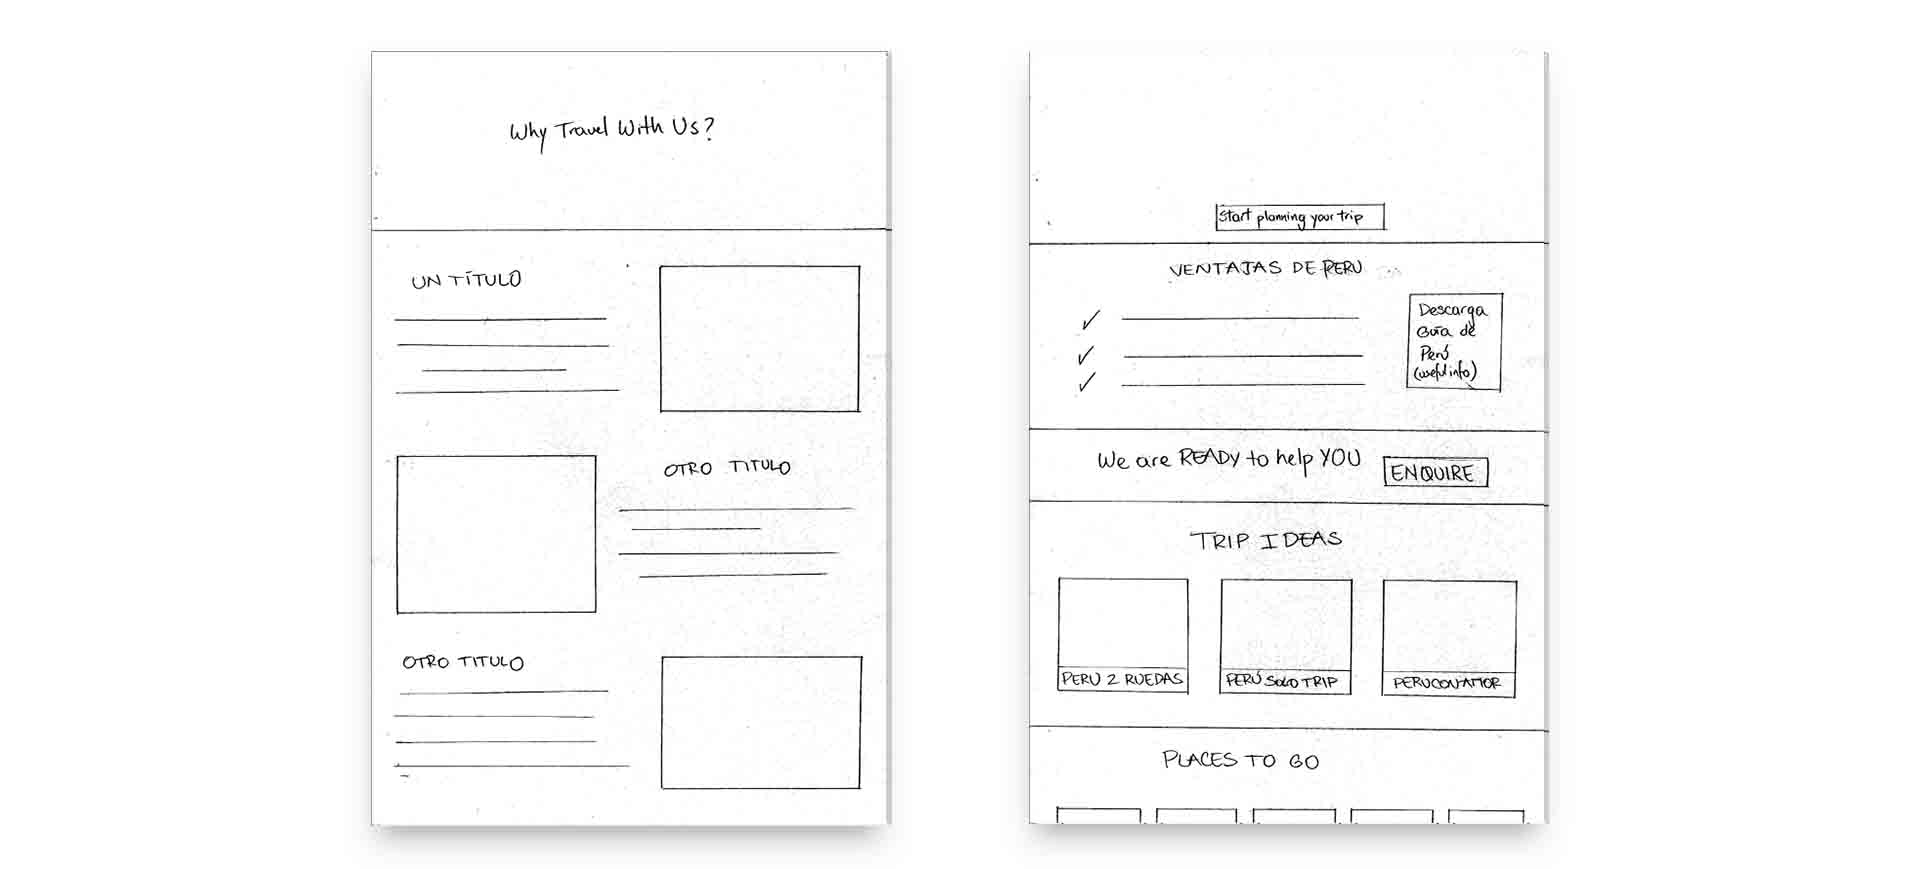 Why Travel With Us?
UN TÍTULO
OTRO TITULO
OTRO TITULO
Start planning your trip
VENTAJAS DE PERU
Descarga
Guía de
Perú
(useful info)
We are READY to help YOU
ENQUIRE
TRIP IDEAS
PERU 2 RUEDAS
PERÚ SOLO TRIP
PERU CON AMOR
PLACES TO GO